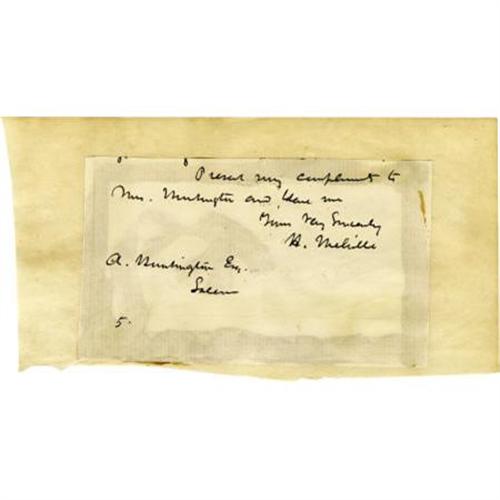 Present my compliments to
Mrs. Huntington and, believe me
Yours Very Sincerely
H. Melville
A. Huntington Esq.
Salem
5.